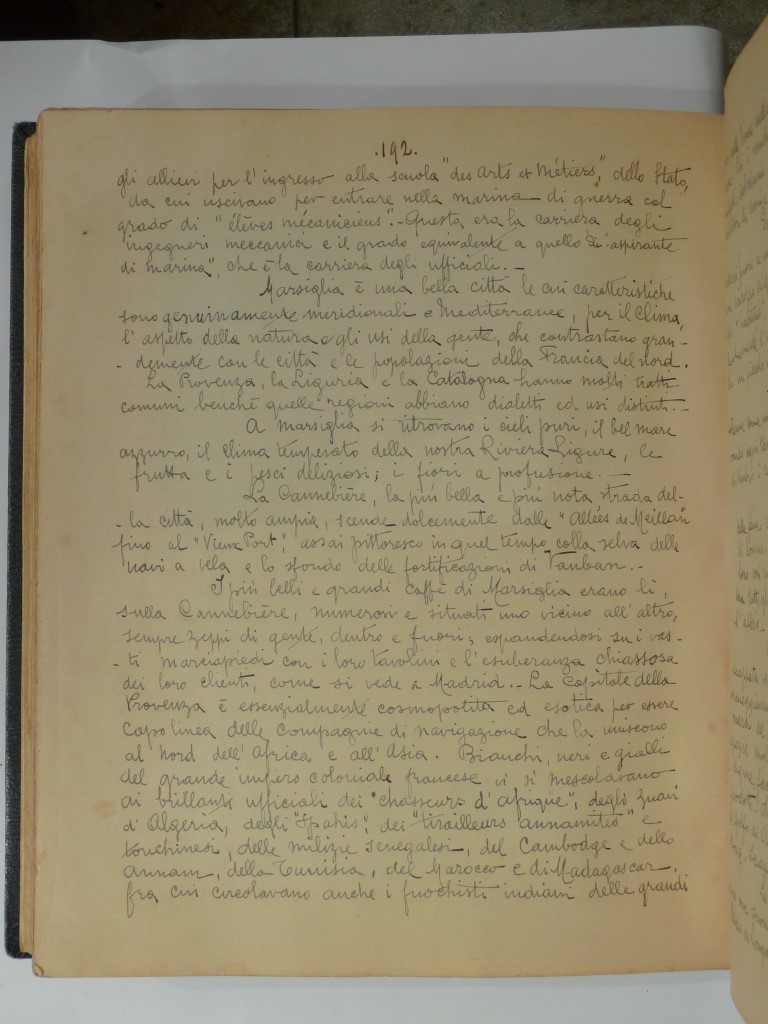 .192.
gli allievi per l'ingresso alla scuola "des Arts et Métiers", dello Stato,
da cui uscivano per entrare nella marina di guerra col
grado di "élèves mécaniciens".- Questa era la carriera degli
ingegneri meccanici e il grado equivalente a quello di "aspirante
di marina", che è la carriera degli ufficiali. -
Marsiglia è una bella città le cui caratteristiche
sono genuinamente meridionali e Mediterranee, per il clima,
l'aspetto della natura e gli usi della gente, che contrastano gran-
- demente con le città e le popolazione della Francia del nord.
La Provenza, la Liguria e la Catalogna hanno molti tratti
comuni benché quelle regioni abbiano dialetti ed usi distinti. -
A Marsiglia si ritrovano i cieli puri, il bel mare
azzurro, il clima temperato della nostra Riviera Ligure, le
frutta e i pesci deliziosi; i fiori a profusione. -
La Cannebière, la più bella e più nota strada del-
- la città, molto ampia, scende dolcemente dalle "Allées de Meillan"
fino al "Vieux Port", assai pittoresco in quel tempo colla selva delle
navi a vela e lo sfondo delle fortificazioni di Vauban. -
I più belli e grandi caffè di Marsiglia erano lì,
sulla Cannebière, numerosi e situati uno vicino all'altro,
sempre zeppi di gente, dentro e fuori; espandendosi su i vas-
- ti marciapiedi con i loro tavolini e l'esuberanza chiassosa
dei loro clienti, come si vede a Madrid. - La capitale della
Provenza è essenzialmente cosmopolita ed esotica per essere
capolinea delle compagnie di navigazione che la uniscono
al nord dell'Africa e all'Asia. Bianchi, neri e gialli
del grande impero coloniale francese vi si mescolavano
ai brillanti ufficiali dei "chasseurs d'Afrique", degli zuavi
d'Algeria, degli "Spahis", dei "tirailleurs annamites" e
tonchinesi, delle milizie senegalesi, del Cambodge e dello
Annam, della Tunisia, del Marocco e di Madagascar,
fra cui circolavano anche i fuochisti indiani delle grandi